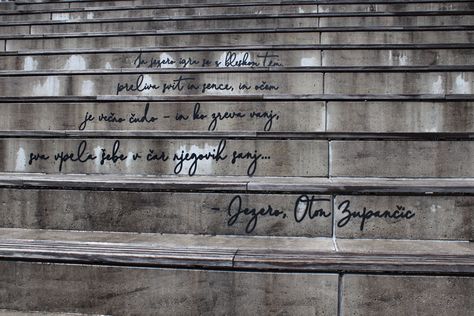 Ja jezero igra se s bleskom tem,
preliva svit in sence, in očem
je večno čudo - in ko zreva vanj,
sva vpela šebe v čar njegovih sanj...
- Jezero, Oton Zupančic